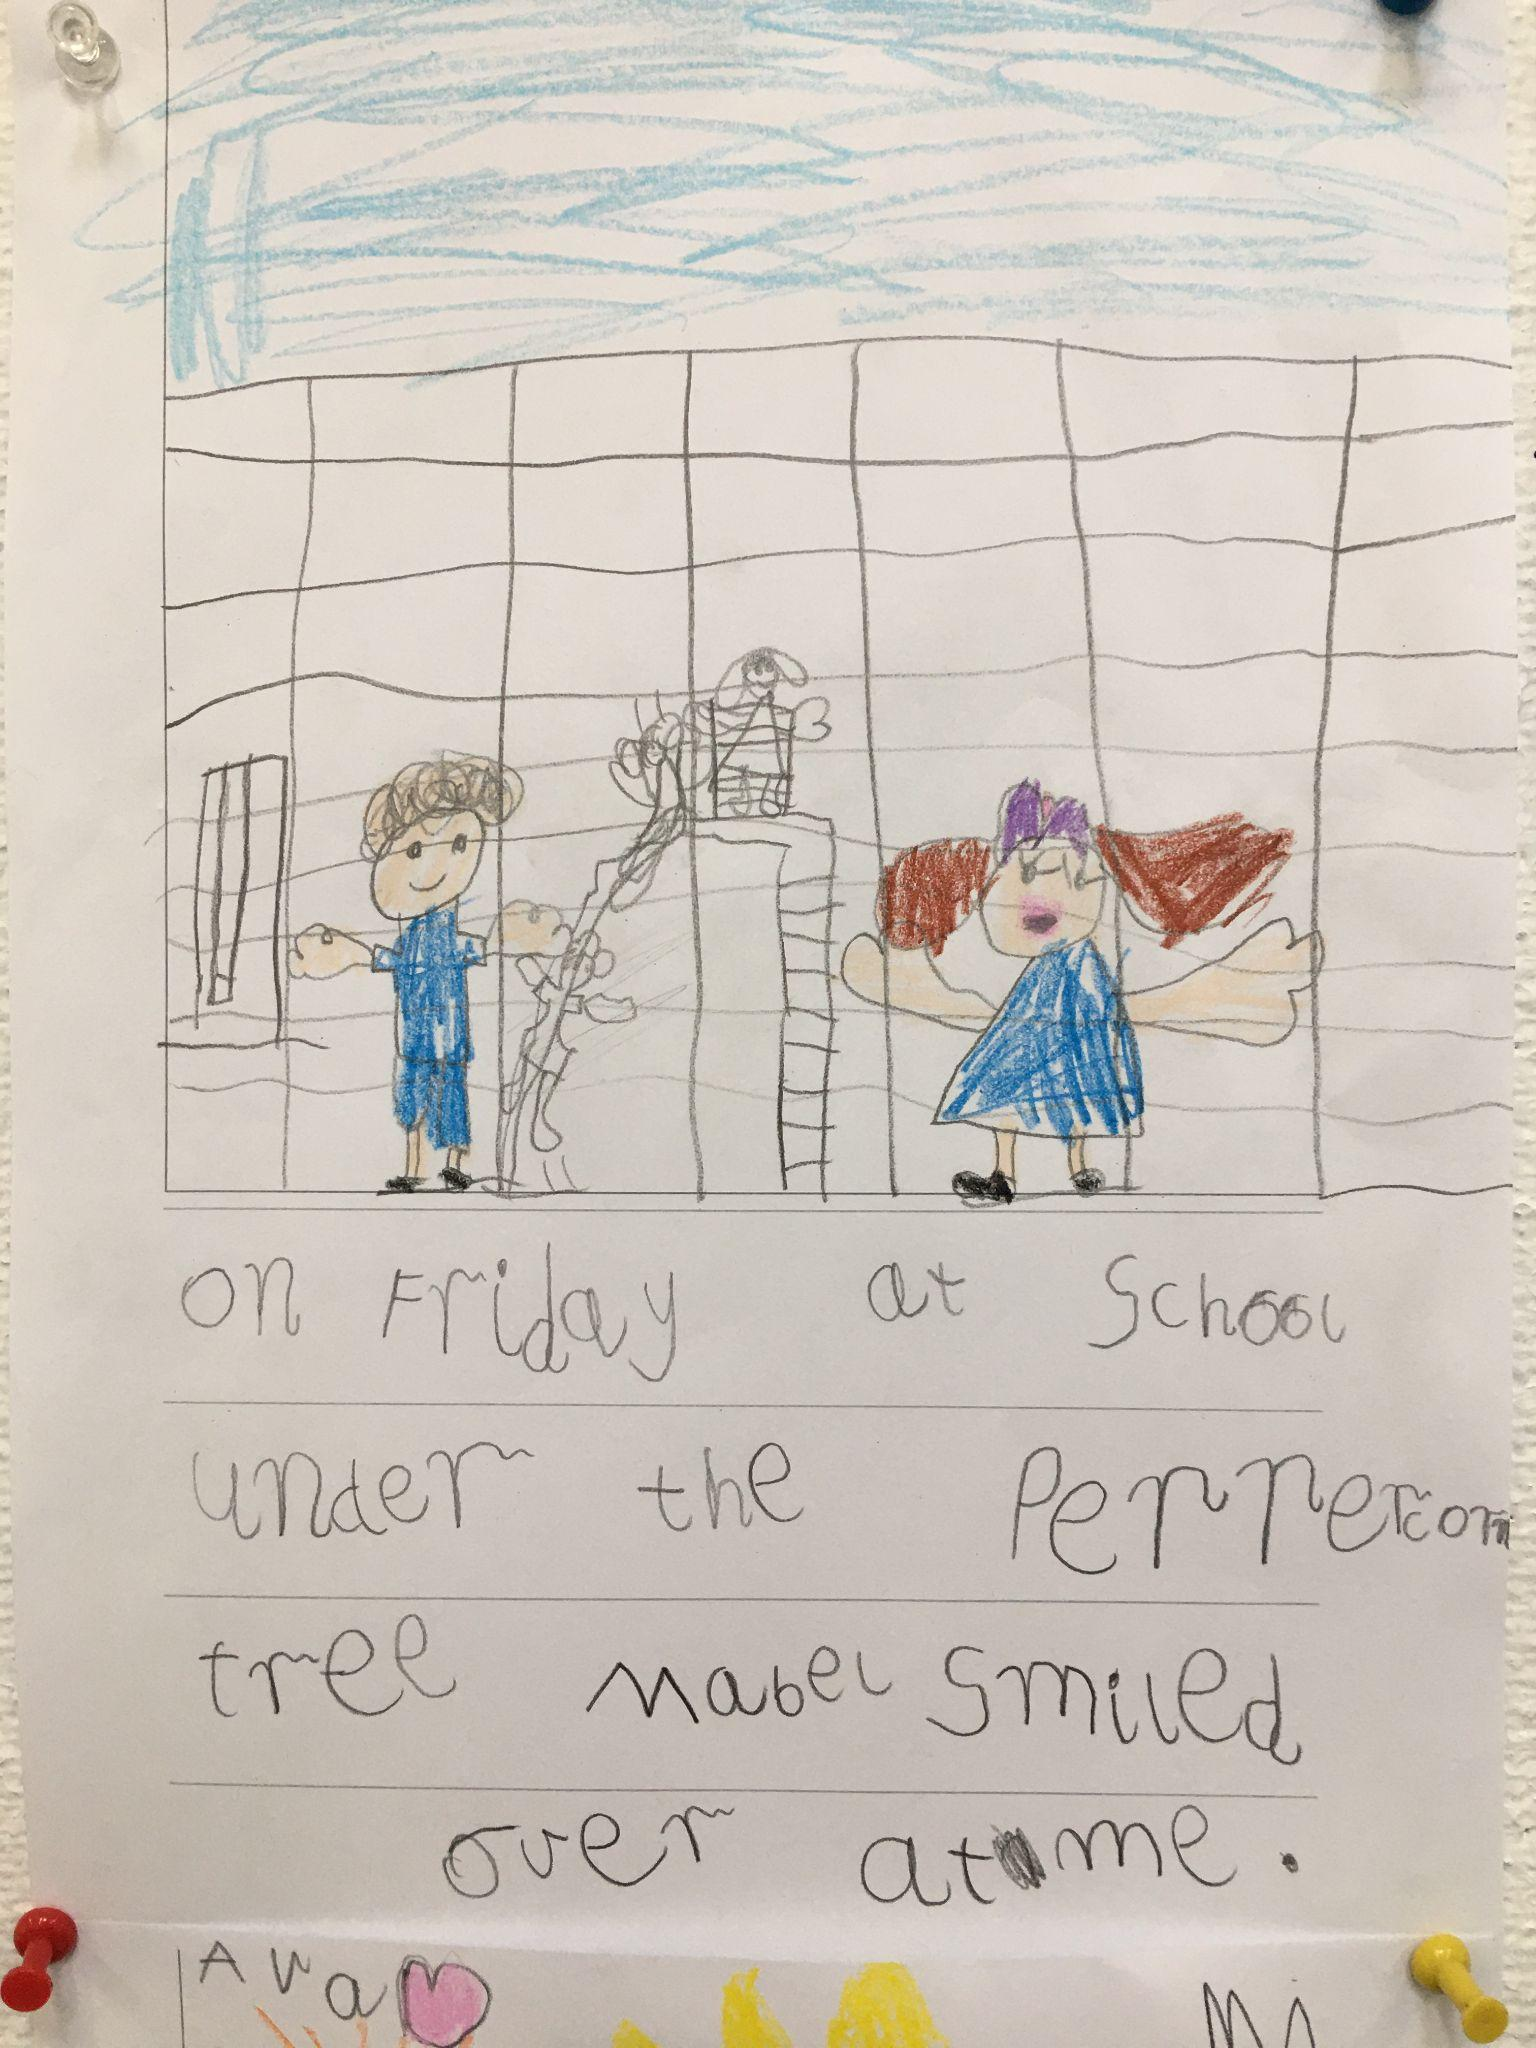 on Friday at School
under the Peppercorn
tree Mabel Smiled
over at me.
Ava